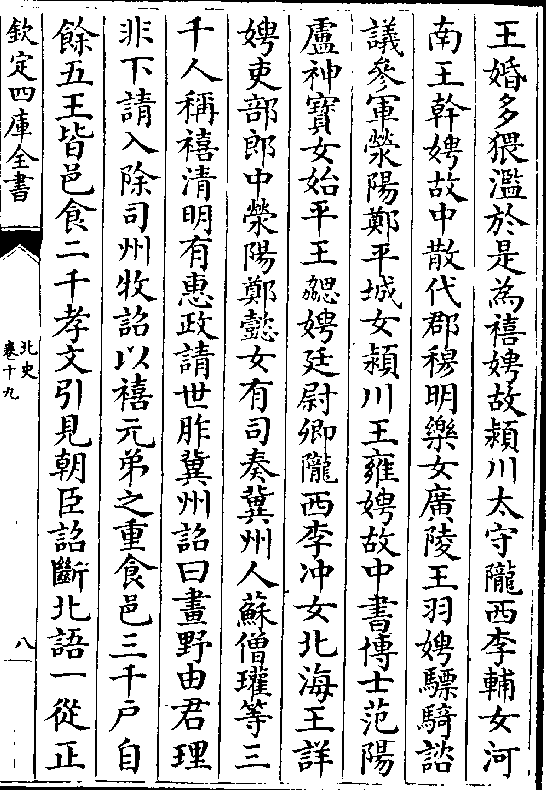 王婚多猥濫於是為禧娉故潁川太守隴西李輔女河
南王幹娉故中散代郡穆明樂女廣陵王羽娉驃騎諮
議參軍滎陽鄭平城女潁川王雍娉故中書博士范陽
盧神寶女始平王勰娉廷尉卿隴西李冲女北海王詳
娉吏部郎中滎陽鄭懿女有司奏冀州人蘇僧瓘等三
千人稱禧清明有惠政請世胙冀州詔曰畫野由君理
非下請入除司州牧詔以禧元弟之重食邑三千户自
餘五王皆邑食二千孝文引見朝臣詔斷北語一從正
欽定四庫全書
北史
卷十九
八